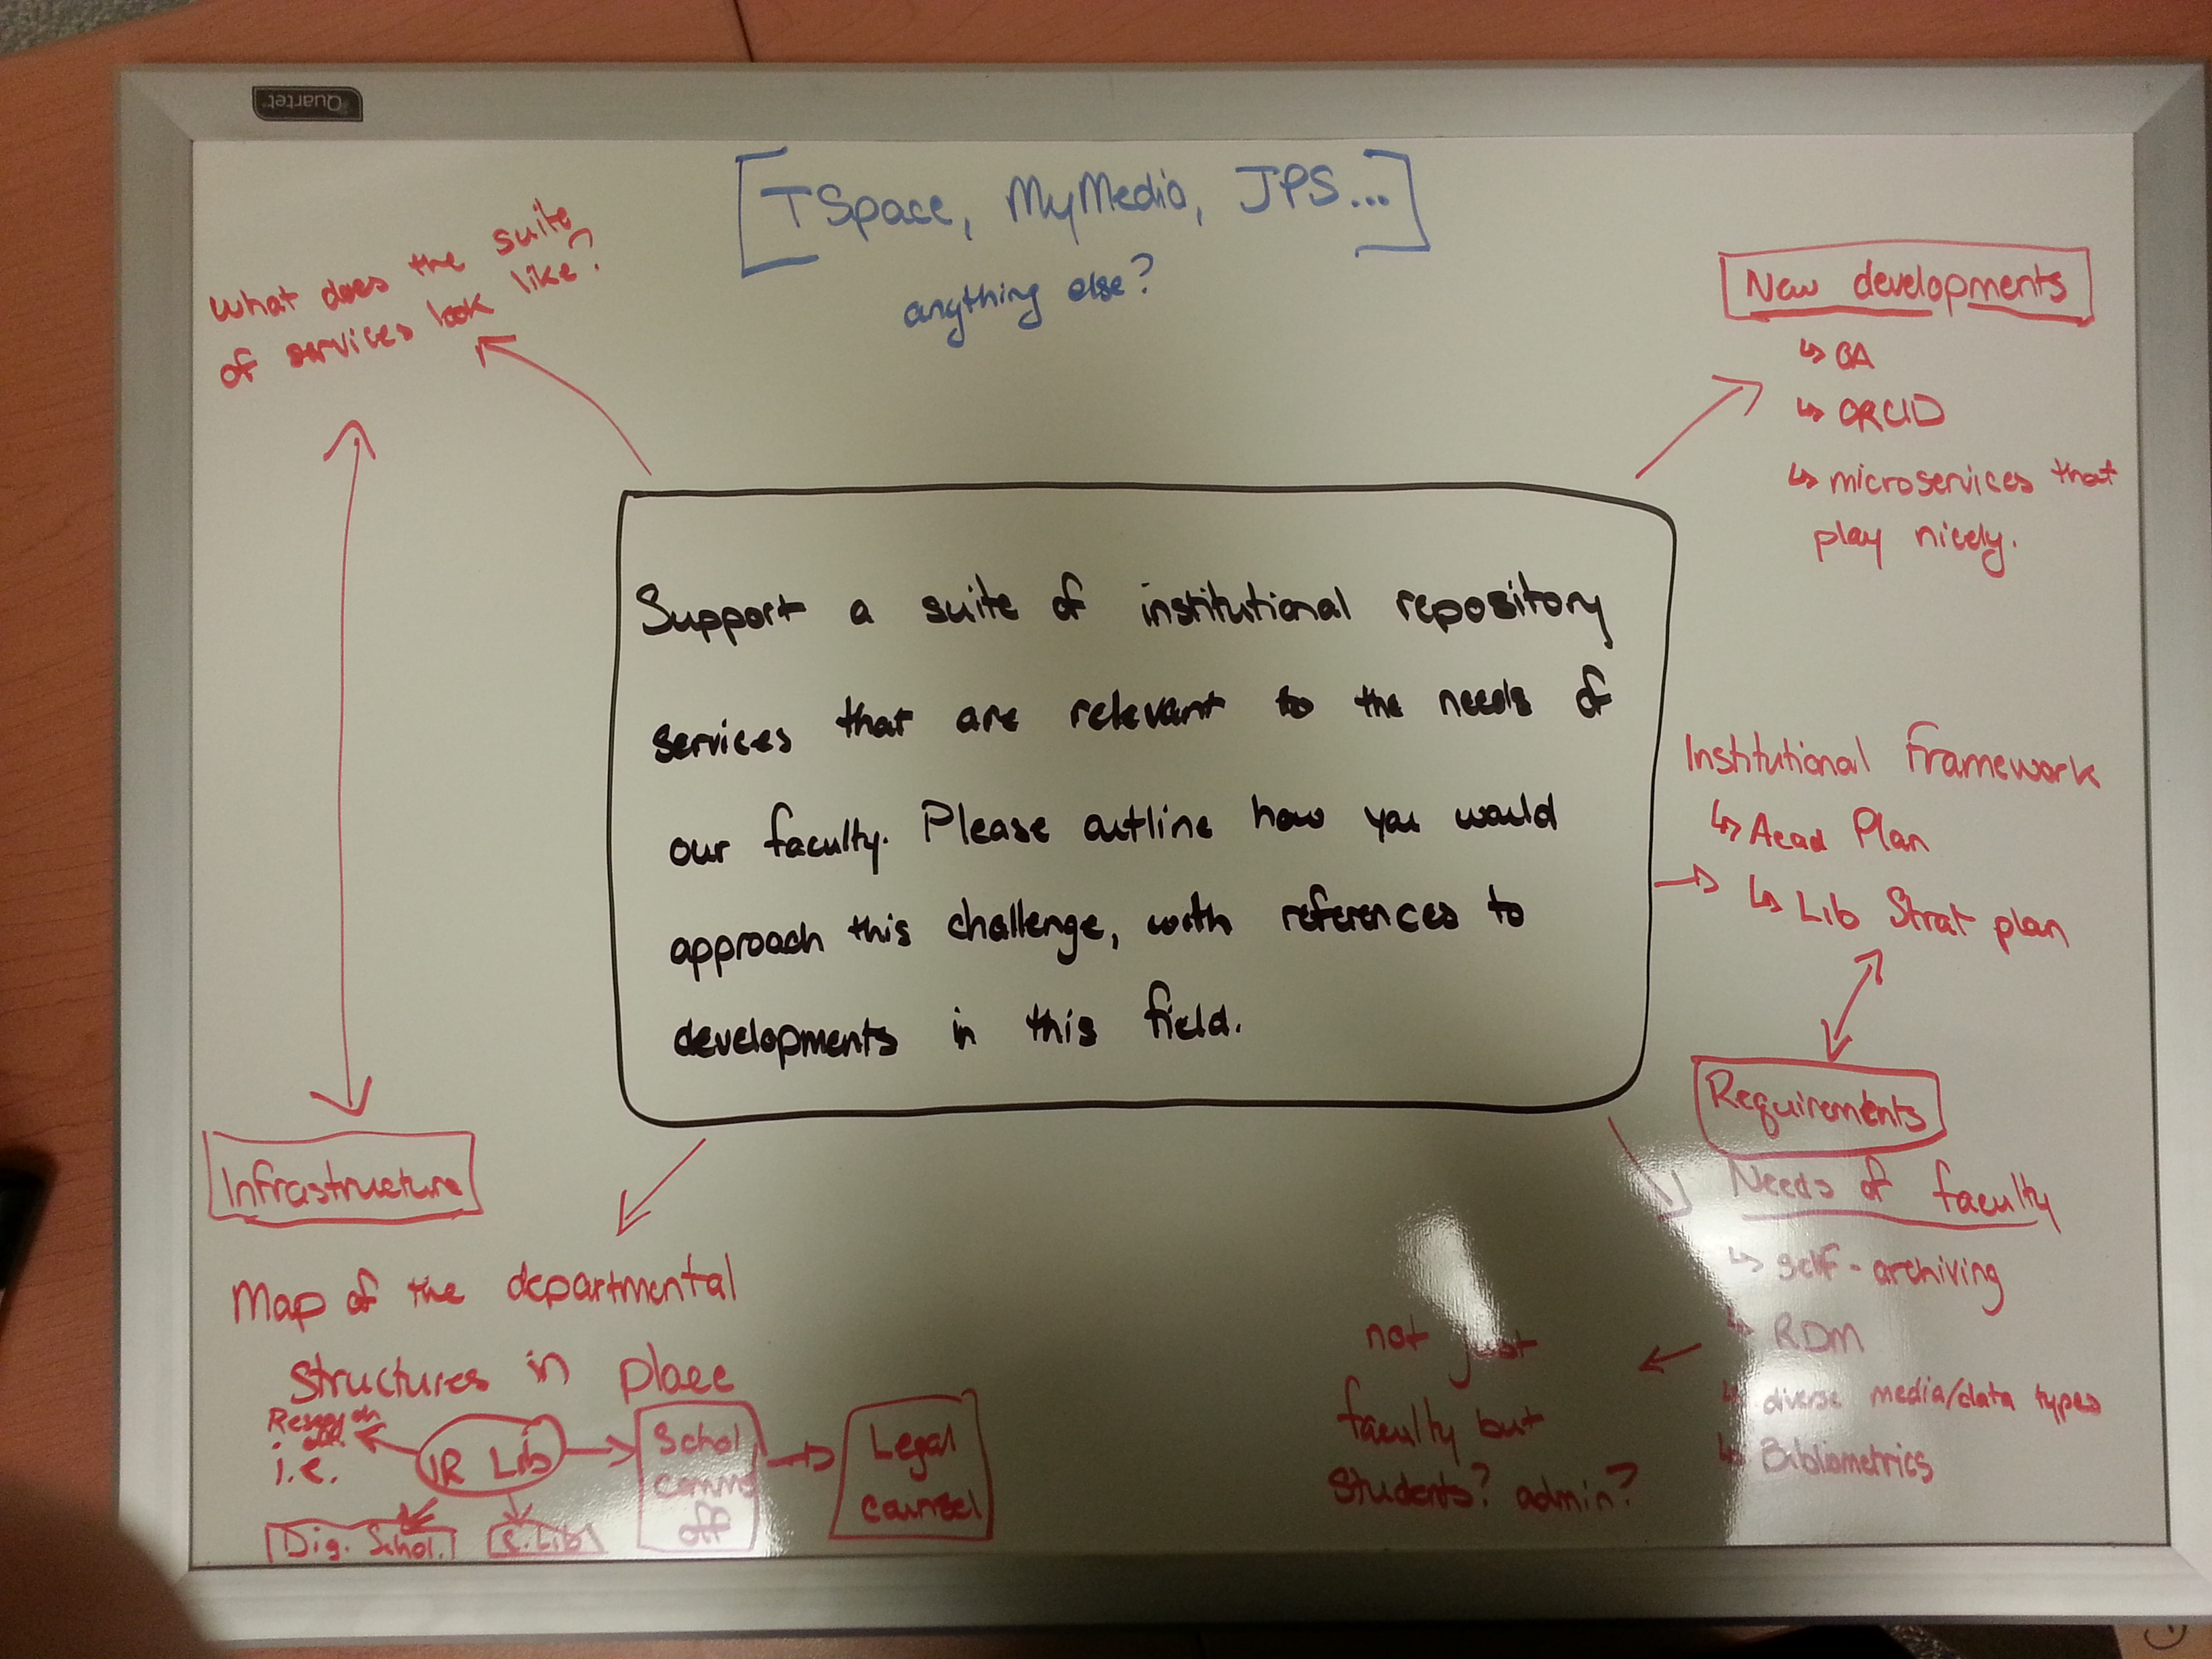 Quartet
[TSpace, MyMedia, JPS...]
anything else?
What does the suite
of services look like?
New developments
↳ OA
↳ ORCID
↳ microservices that
play nicely.
Support a suite of institutional repository
services that are relevant to the needs of
our faculty. Please outline how you would
approach this challenge, with references to
developments in this field.
Institutional Framework
↳ Acad Plan
↳ Lib Strat plan
Requirements
Needs of faculty
↳ self-archiving
↳ RDM
↳ diverse media/data types
↳ Bibliometrics
not just
faculty but
students? admin?
Infrastructure
Map of the departmental
structures in place
i.e.
Research off.
IR Lib
Schol
comm
off
Legal
counsel
Dig. Schol.
Lib